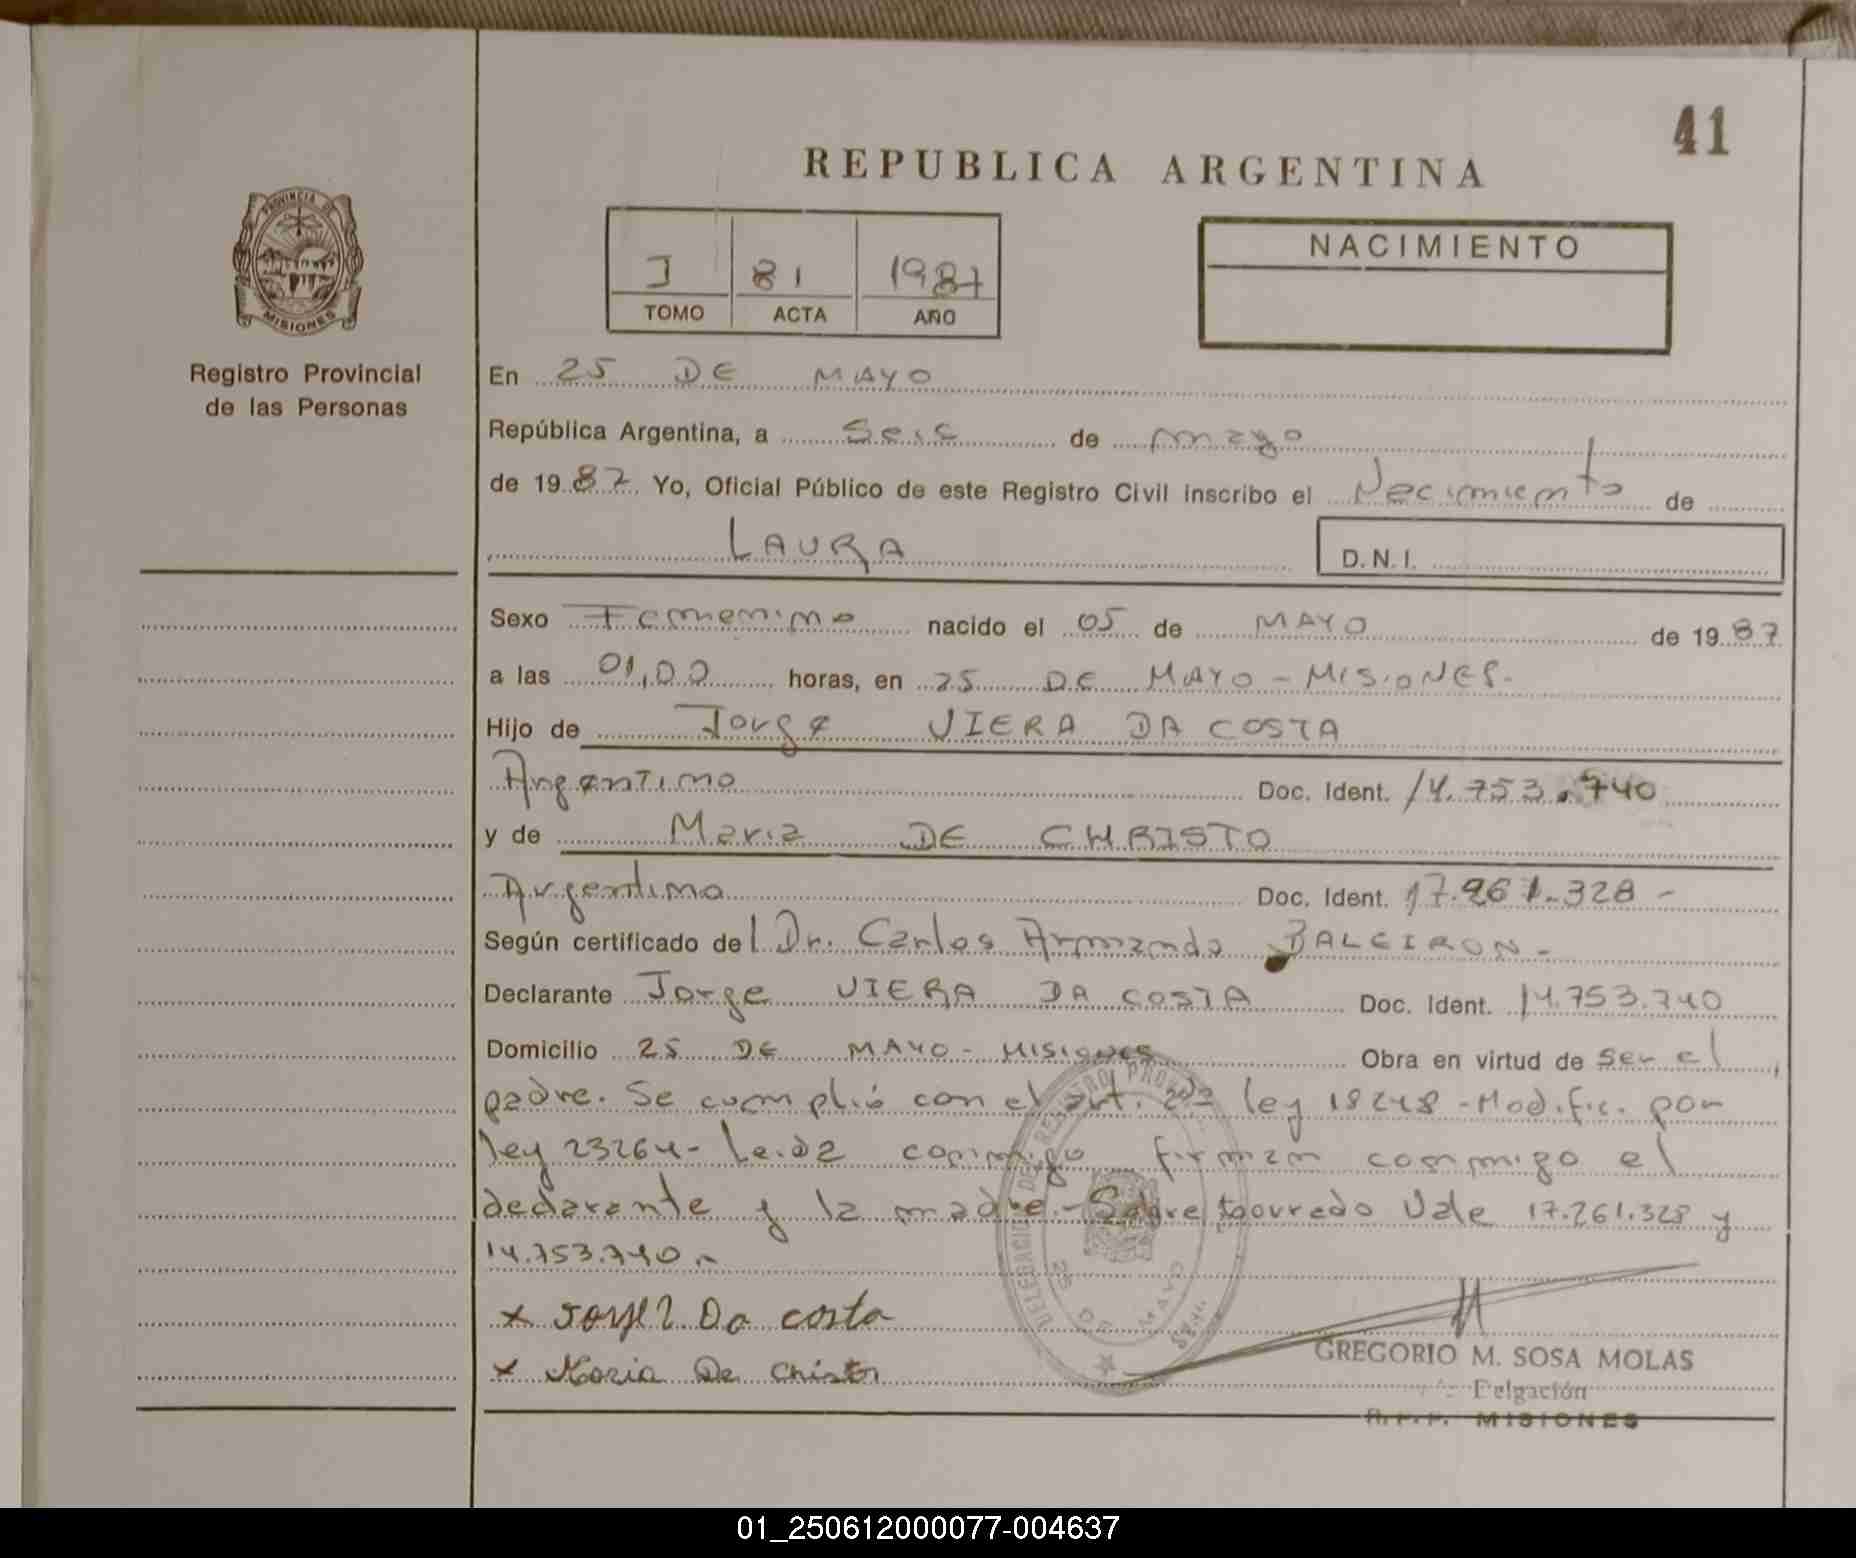 41
REPUBLICA ARGENTINA
PROVINCIA DE
MISIONES
Registro Provincial
de las Personas
I 81 1987
TOMO ACTA AÑO
NACIMIENTO
En 25 DE MAYO
República Argentina, a Seis de mayo
de 1987 Yo, Oficial Público de este Registro Civil inscribo el Nacimiento de
LAURA D.N.I.
Sexo Femenino nacido el 05 de MAYO de 1987
a las 01,00 horas, en 25 DE MAYO - MISIONES.
Hijo de Jorge VIERA DA COSTA
Argentino Doc. Ident. 14.753.740
y de Maria DE CHRISTO
Argentina Doc. Ident. 17.261.328 -
Según certificado del Dr. Carlos Armando BALEIRON -
Declarante Jorge VIERA DA COSTA Doc. Ident. 14.753.740
Domicilio 25 DE MAYO - MISIONES Obra en virtud de ser el
padre. Se cumplió con el art. 2do ley 18248 - Modific. por
ley 23264 - Leida conmigo firman conmigo el
declarante y la madre. - Sobre borrado Vale 17.261.328 y
14.753.740 -
x Da costa
x Maria De Christo
DELEGACION DEL REGISTRO PROV
25 DE MAYO
GREGORIO M. SOSA MOLAS
Delgación
R.P.P. MISIONES
01_250612000077-004637